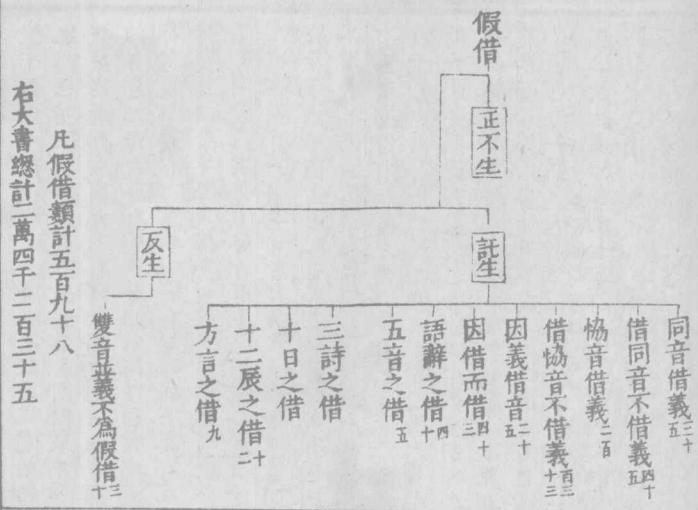 假借
正不生
託生
反生
同音借義三十五
借同音不借義四十五
恊音借義二百
借恊音不借義百三十三
因義借音二十五
因借而借四十三
語辭之借四十
五音之借五
三詩之借
十日之借
十二辰之借十二
方言之借九
雙音並義不為假借三十
凡假借類計五百九十八
右六書緫計二萬四千二百三十五